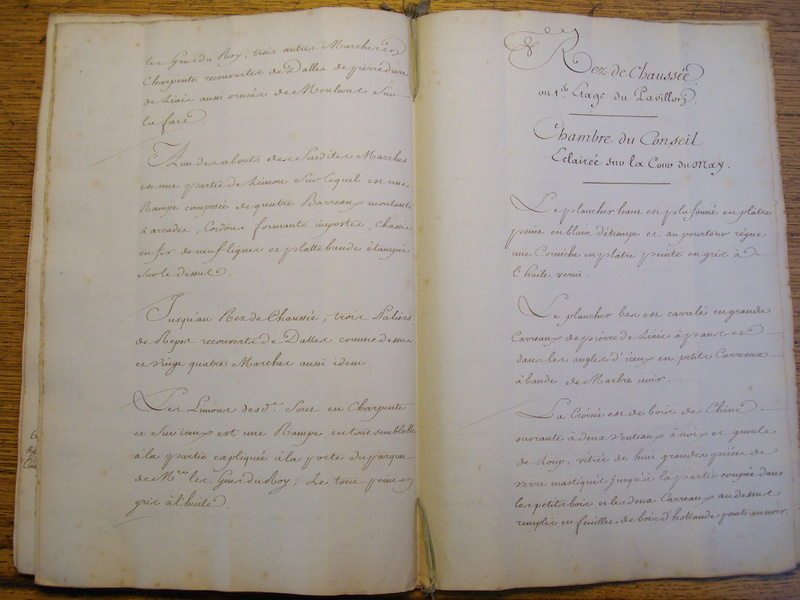 les Gens du Roy, trois autres Marches en
Charpente recouvertes de Dalles de pierre dure
de Liais aussi ornées de Moulures sur
la face.
Aux des abouts des susdites Marches
est une partie de Limon sur lequel est une
Rampe composée de quatre Barreaux montants
à arcades, Cordons formants impostes, Chassis
en fer de neuf lignes et platte bande étampée
sur le dessus.
Jusqu'au Rez de Chaussée, trois Paliers
de Repos recouverts de Dalles comme dessus
et vingt quatre Marches aussi idem.
Les Limons desd.ts sont en Charpente
et sur iceux est une Rampe en tout semblable
à la partie expliquée à la porte du parquet
de M.rs les Gens du Roy; Le tout peint en
gris à l'huile.
Rez de Chaussée
ou 1.er Etage du Pavillon.
Chambre du Conseil
Eclairée sur la Cour du May.
Le plancher haut est plafonné en plâtre
peint en blanc d'étrempe et au pourtour règne
une Corniche en plâtre peinte en gris à
l'huile verni.
Le plancher bas est carrelé en grands
Carreaux de pierre de Liais à pans et
dans les angles d'iceux en petits Carreaux
à bande de Marbre noir.
La Croisée est de bois de Chêne
ouvrante à deux Venteaux à noix et gueule
de Loup, vitrée de huit grandes pièces de
verre mastiquées jusqu'à la partie coupée dans
les petits bois et les deux Carreaux au dessus
remplis en feuilles de bois d'hollande peints en noir.